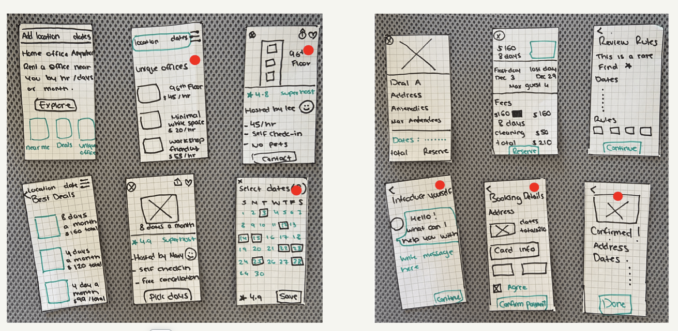 Add location dates
Home office Anywhere
Rent a office near
you by hr/days
or month.
Explore
near me Deals unique
office
location dates
unique offices
96th Floor
$45/hr
minimal
white space
$20/hr
workshop
friendly
$55/hr
96th
Floor
4.8 Superhost
Hosted by lee
- 45/hr
- Self check-in
- no pets
Contact
Location date
Best Deals
8 days
a month
$160 total
4 days
a month
$120 total
4 day a
month
8 days a month
4.9 Superhost
Hosted by
- self checkin
- Free cancellation
Pick days
Select dates
S M T W T F S
4.9 Save
Deal A
Address
Amenities
Max Attendees
Dates:
total Reserve
$160
8 days
First day last day
Dec 3 Dec 29
Max guest 4
Fees
$160 $160
8 days
cleaning $50
total $210
Reserve
Review Rules
This is a rare
Find
Dates
Rules
Continue
Introduce yourself
Hello!
what can I
help you with
message
here
Continue
Booking Details
Address
dates
Card info
Agree
Confirm payment
Confirmed!
Address
Dates
Done